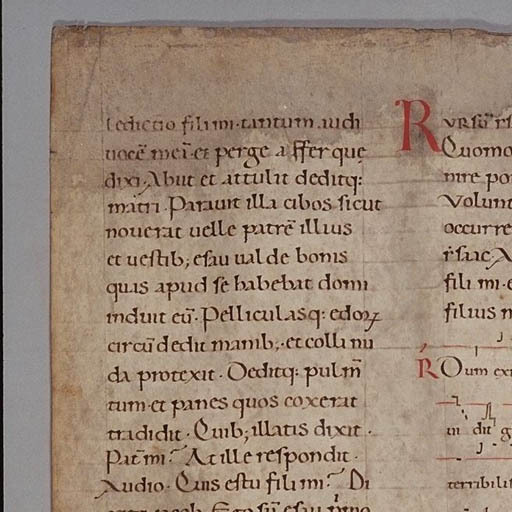 ledictio fili mi· tantum audi
uocē meā· et perge affer que
dixi· Abut et attulit deditq:
matri· Parauit illa cibos sicut
nouerat uelle patrē illius
et uestib; esau ualde bonis
quas apud se habebat domi
induit eū· Pelliculasq: edoꝝ
circūdedit manib;· et colli nu
da protexit· Deditq: pulm̄
tum· et panes quos coxerat
tradidit· Quib; illatis dixit·
Pat̄ mi? At ille respondit·
Audio· Quis es tu fili mi? Di
Rursū
Quomo
nire po
Volunt
occurre
isaac· A
fili mi· e
filius m
R Dum exi
in dit g
terribili